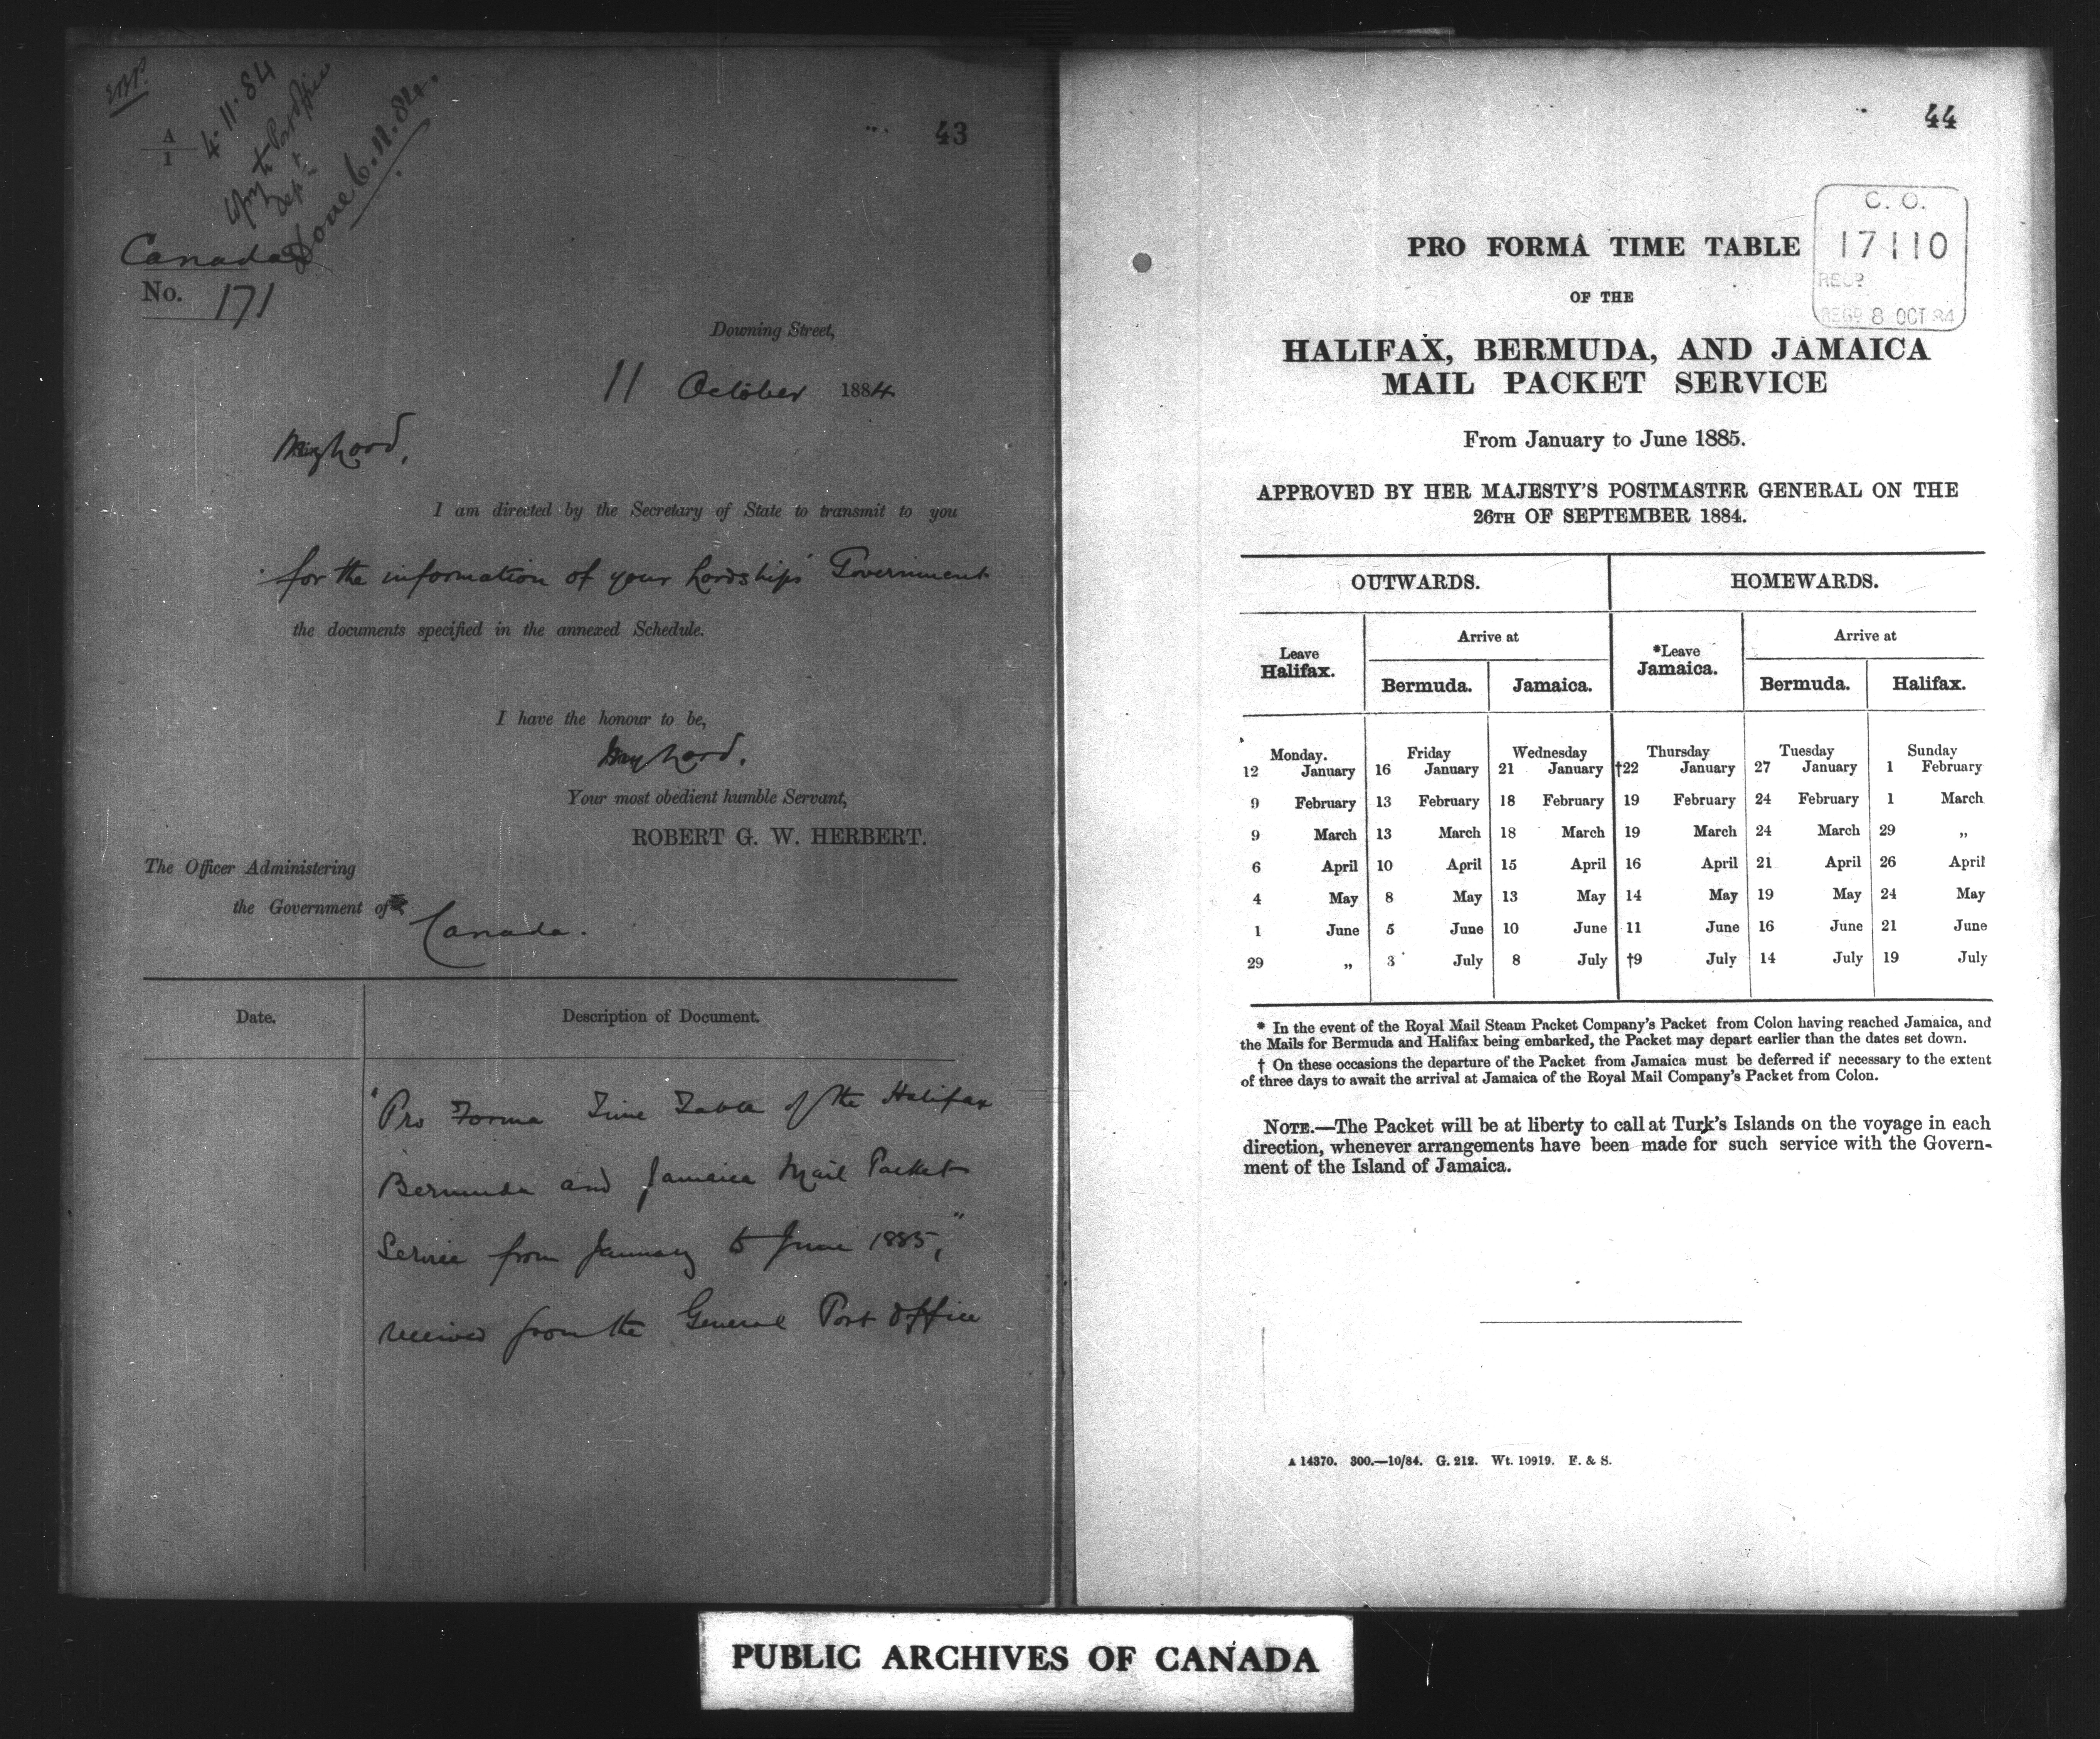 43
A
1
4.11.84
Copy to Post Office
Dept
Done 6.11.84.
Canada
No. 171
Downing Street,
11 October 1884
My Lord,
I am directed by the Secretary of State to transmit to you
for the information of your Lordship's Government
the documents specified in the annexed Schedule.
I have the honour to be,
My Lord,
Your most obedient humble Servant,
ROBERT G. W. HERBERT.
The Officer Administering
the Government of
Canada.
Date. Description of Document.
"Pro Forma Time Table of the Halifax
Bermuda and Jamaica Mail Packet
Service from January to June 1885,"
received from the General Post Office
44
C. O.
17110
RECD
REGD 8 OCT 84
PRO FORMÂ TIME TABLE
OF THE
HALIFAX, BERMUDA, AND JAMAICA
MAIL PACKET SERVICE
From January to June 1885.
APPROVED BY HER MAJESTY'S POSTMASTER GENERAL ON THE
26TH OF SEPTEMBER 1884.
OUTWARDS. HOMEWARDS.
Leave Halifax. Arrive at Bermuda. Jamaica. *Leave Jamaica. Arrive at Bermuda. Halifax.
Monday. Friday Wednesday Thursday Tuesday Sunday
12 January 16 January 21 January †22 January 27 January 1 February
9 February 13 February 18 February 19 February 24 February 1 March
9 March 13 March 18 March 19 March 24 March 29 „
6 April 10 April 15 April 16 April 21 April 26 April
4 May 8 May 13 May 14 May 19 May 24 May
1 June 5 June 10 June 11 June 16 June 21 June
29 „ 3 July 8 July †9 July 14 July 19 July
* In the event of the Royal Mail Steam Packet Company's Packet from Colon having reached Jamaica, and
the Mails for Bermuda and Halifax being embarked, the Packet may depart earlier than the dates set down.
† On these occasions the departure of the Packet from Jamaica must be deferred if necessary to the extent
of three days to await the arrival at Jamaica of the Royal Mail Company's Packet from Colon.
NOTE.—The Packet will be at liberty to call at Turk's Islands on the voyage in each
direction, whenever arrangements have been made for such service with the Govern-
ment of the Island of Jamaica.
A 14370. 300.—10/84. G. 212. Wt. 10919. E. & S.
PUBLIC ARCHIVES OF CANADA